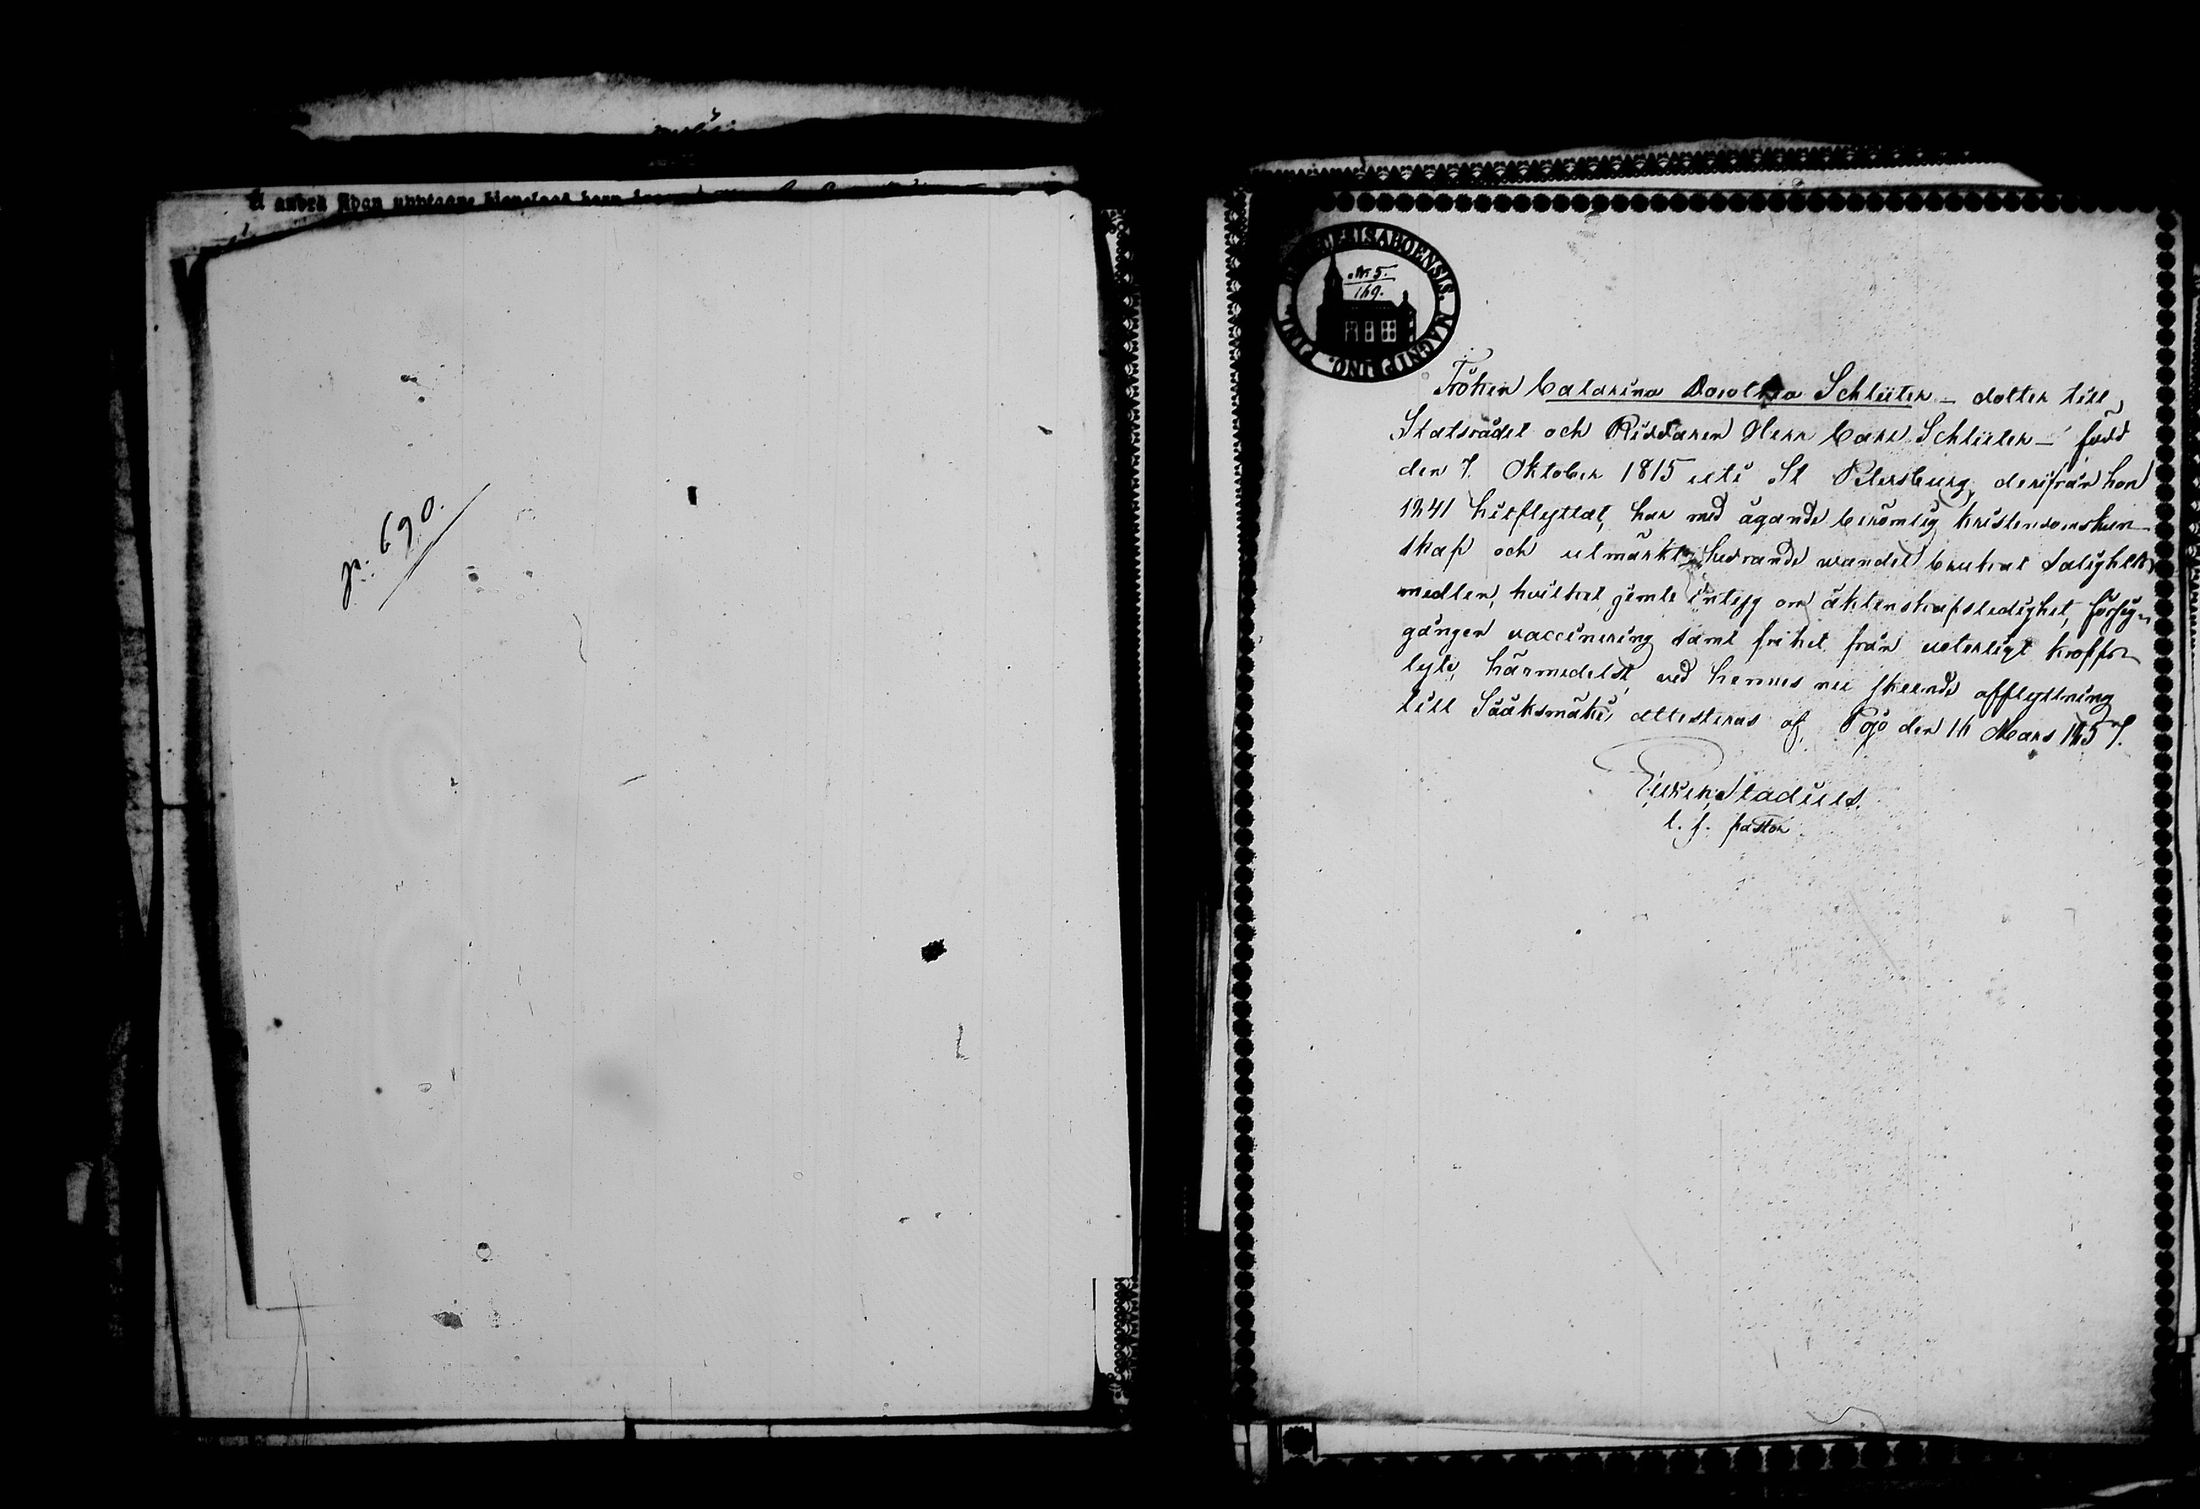 p. 690.
DIOECESIS ABOENSIS. MAGNI PRINC. FINL.
N 5.
169.
Fröken Catarina Dorothea Schlüter – dotter till
Statsrådet och Riddaren Herr Carl Schlüter – född
den 7 Oktober 1815 uti St Petersburg, derifrån hon
1841 hitflyttat, har med ägande berömlig kristendomskun-
skap och utmärkt hedrande vandel brukat salighets
medlen, hvilket jemte intyg om äktenskapsledighet,
gången vaccinering samt frihet från veterligt kropps-
lyte, härmedelst, vid hennes nu skeende afflyttning
till Sääksmäki, attesteras af. Pojo den 16 Mars 1857.
t. f. pastor